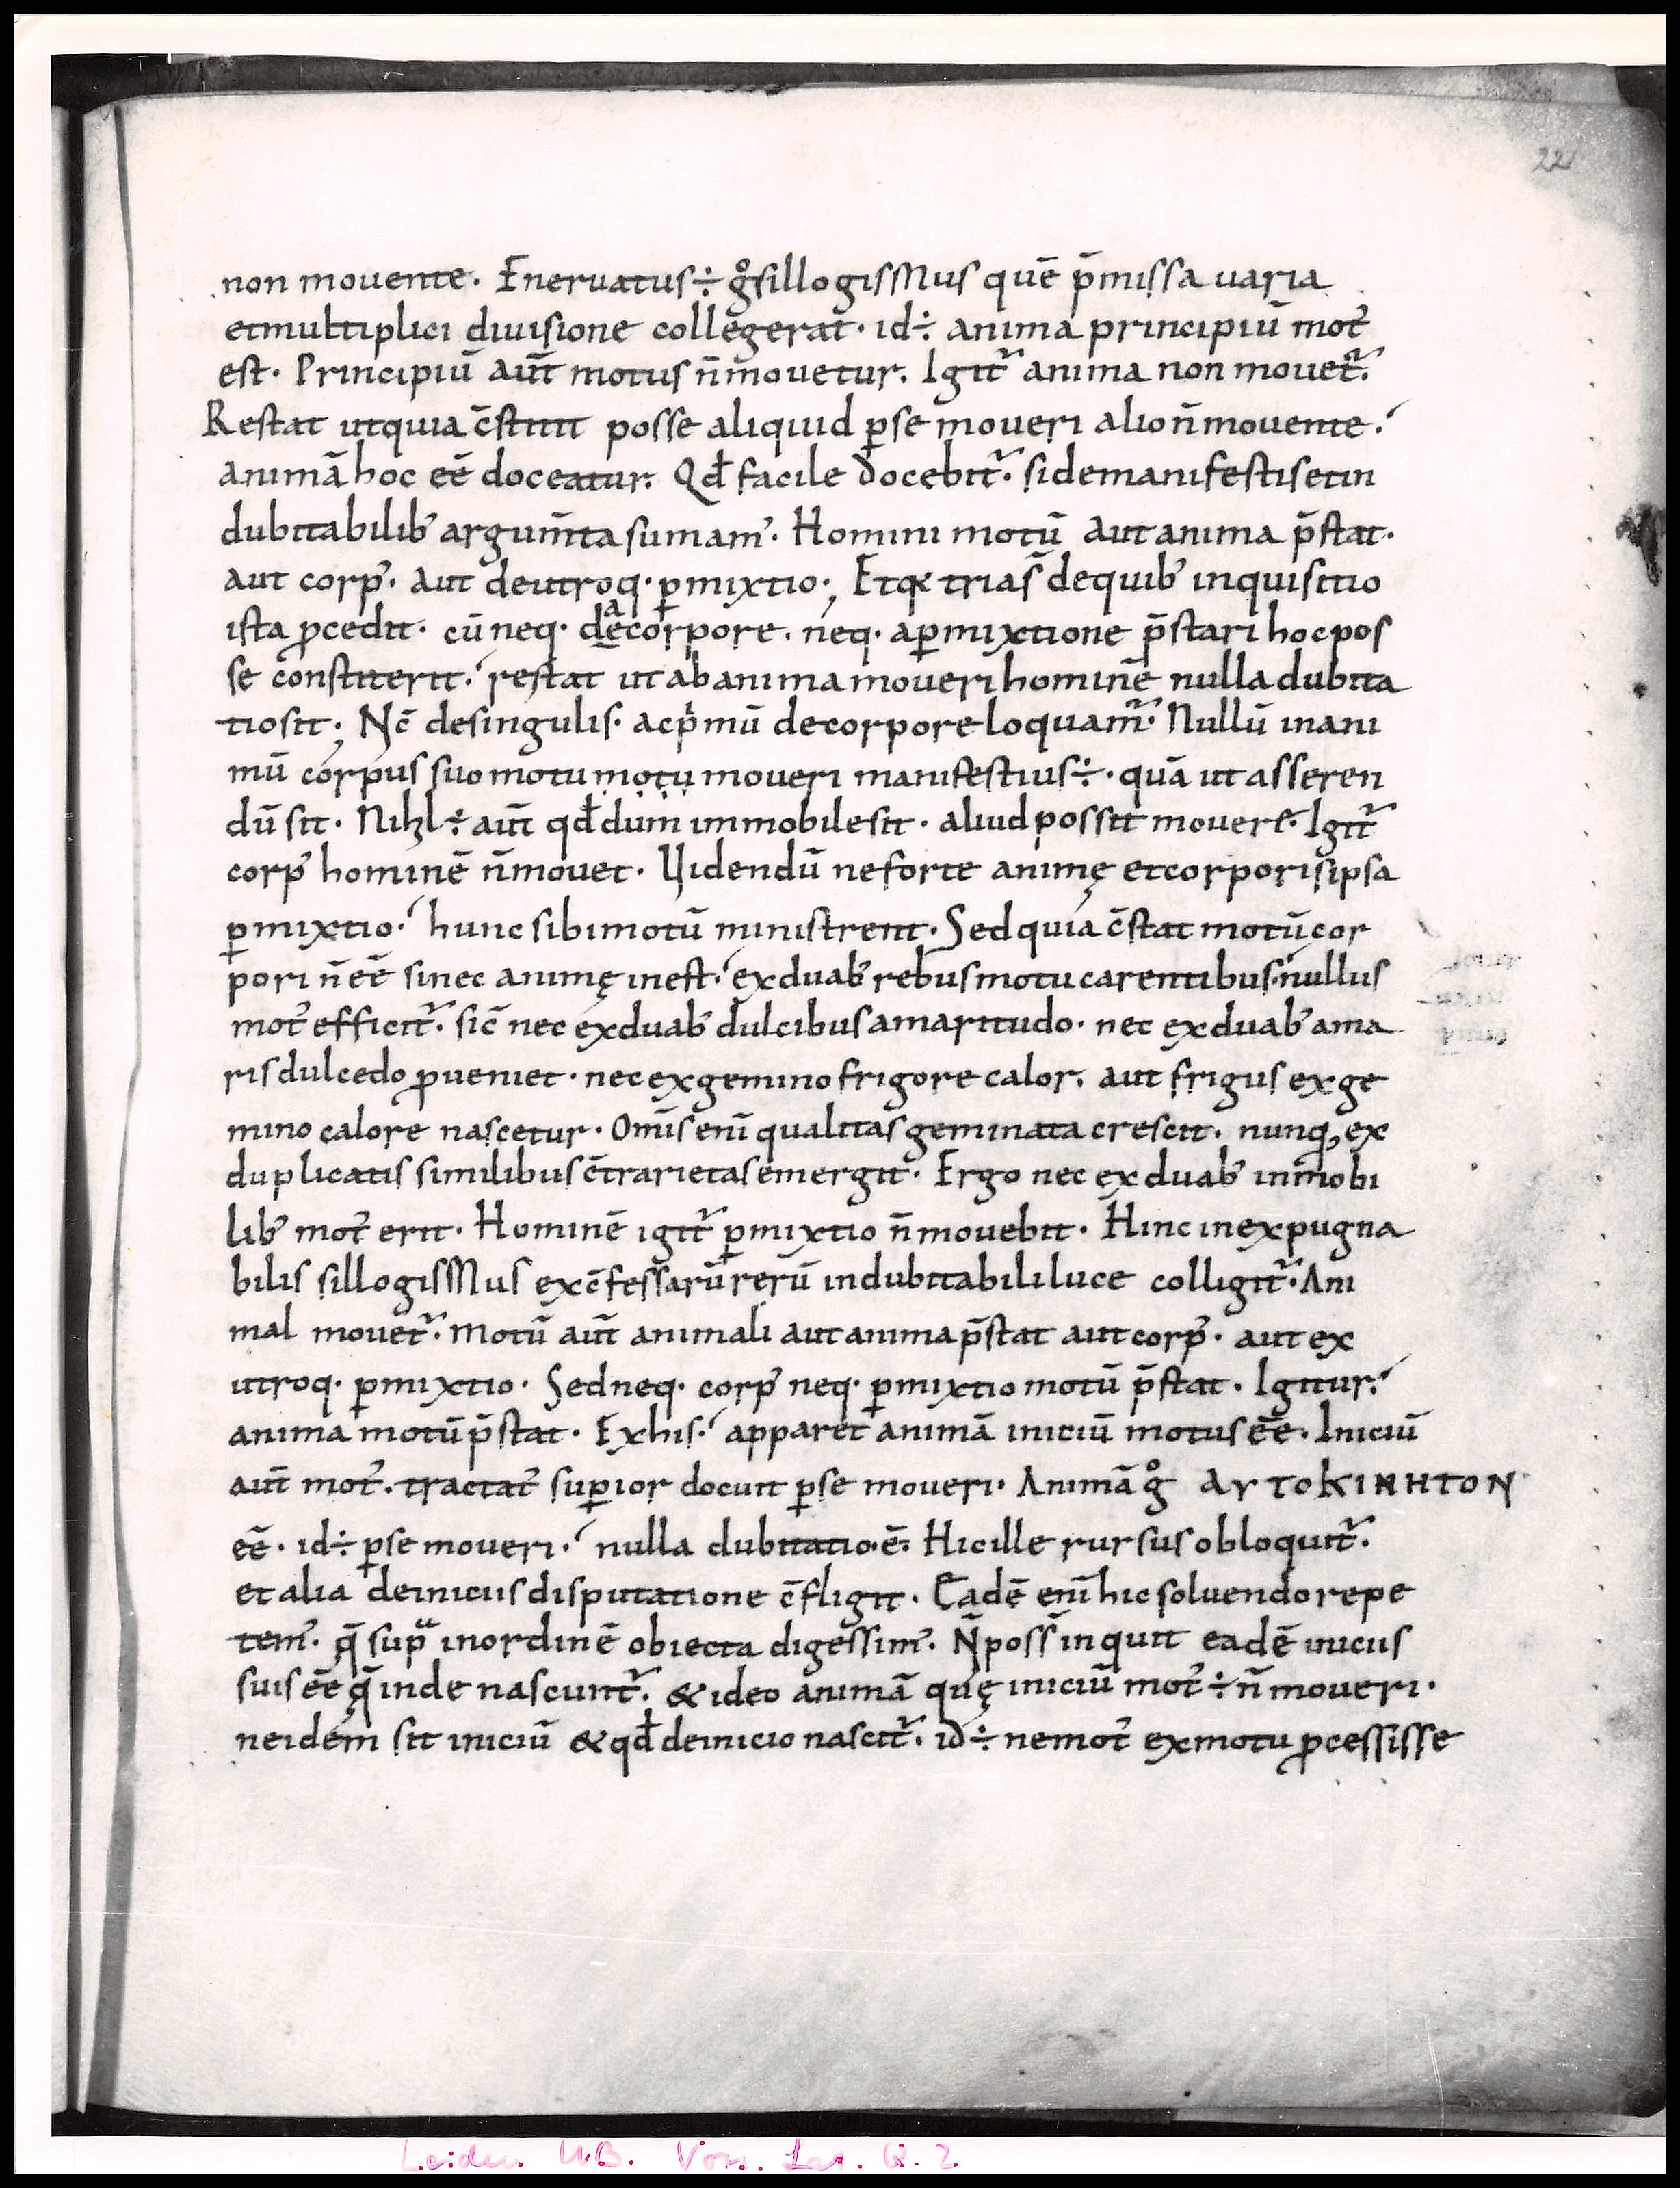 22
non mouente. Eneruatus ÷ g̊ sillogisMus quē p̄missa uaria
et multiplici diuisione collegerat. id ÷ anima principiū mot᷒
est. Principiū aut̄ motus n̄ mouetur. Igit᷑ anima non mouet᷑.
Restat ut quia c̄stitit posse aliquid ꝑ se moueri alio n̄ mouente.
animā hoc eē doceatur. Qđ facile docebit᷑. si de manifestis et in
dubitabilib᷒ argum̄ta sumam᷒. Homini motū aut anima p̄stat.
aut corp᷒. aut de utroq. ꝑmixtio; Et qꝛ tria s̄ de quib᷒ inquisitio
ista ꝓcedit. cū neq. de a corpore. neq. a ꝑmixtione p̄stari hoc pos
se constiterit. restat ut ab anima moueri hominē nulla dubita
tio sit; Nc̄ de singulis. ac pⁱmū de corpore loquam᷑. Nullū inani
mū corpus suo motu motu moueri manifestius ÷. quā ut asseren
dū sit. Nihl ÷ aut̄ qđ dum immobile sit. aliud possit mouere. Igit᷑
corp᷒ hominē n̄ mouet. Uidendū ne forte animę et corporis ipsa
ꝑmixtio. hunc sibi motū ministrent. Sed quia c̄stat motū cor
pori n̄ eē si nec animę inest. ex duab᷒ rebus motu carentibus. nullus
mot᷒ efficit᷑. sic̄ nec ex duab᷒ dulcibus amaritudo. nec ex duab᷒ ama
ris dulcedo ꝓueniet. nec ex gemino frigore calor. aut frigus ex ge
mino calore nascetur. Om̄s eni̅ qualitas geminata crescit. nunq̄ ex
duplicatis similibus c̄trarietas emergit. Ergo nec ex duab᷒ inmobi
lib᷒ mot᷒ erit. Hominē igit᷑ ꝑmixtio n̄ mouebit. Hinc inexpugna
bilis sillogisMus ex c̄fessarū rerū indubitabili luce colligit᷑. Ani
mal mouet᷑. Motū aut̄ animali aut anima p̄stat aut corp᷒. aut ex
utroq. ꝑmixtio. Sed neq. corp᷒ neq. ꝑmixtio motū p̄stat. Igitur.
anima motū p̄stat. Ex his. apparet animā iniciū motus eē. Iniciū
aut̄ mot᷒. tractat᷒ suꝑior docuit ꝑ se moueri. Animā g̊ ΑΥΤΟΚΙΝΗΤΟΝ
eē. id ÷ ꝑ se moueri. nulla dubitatio. ē. Hic ille rursus obloquit᷑.
et alia de iniciis disputatione c̄fligit. Eadē eni̅ hic soluendo repe
tem᷒. q̄ supᵃ in ordinē obiecta digessim᷒. N̄ poss̄ inquit eadē iniciis
suis eē q̄ inde nascunt᷑. & ideo animā quę iniciū mot᷒ ÷ n̄ moueri.
ne idem sit iniciū & qđ de inicio nascit᷑. id ÷ ne mot᷒ ex motu ꝓcessisse
Leiden U.B. Voss. Lat. Q. 2